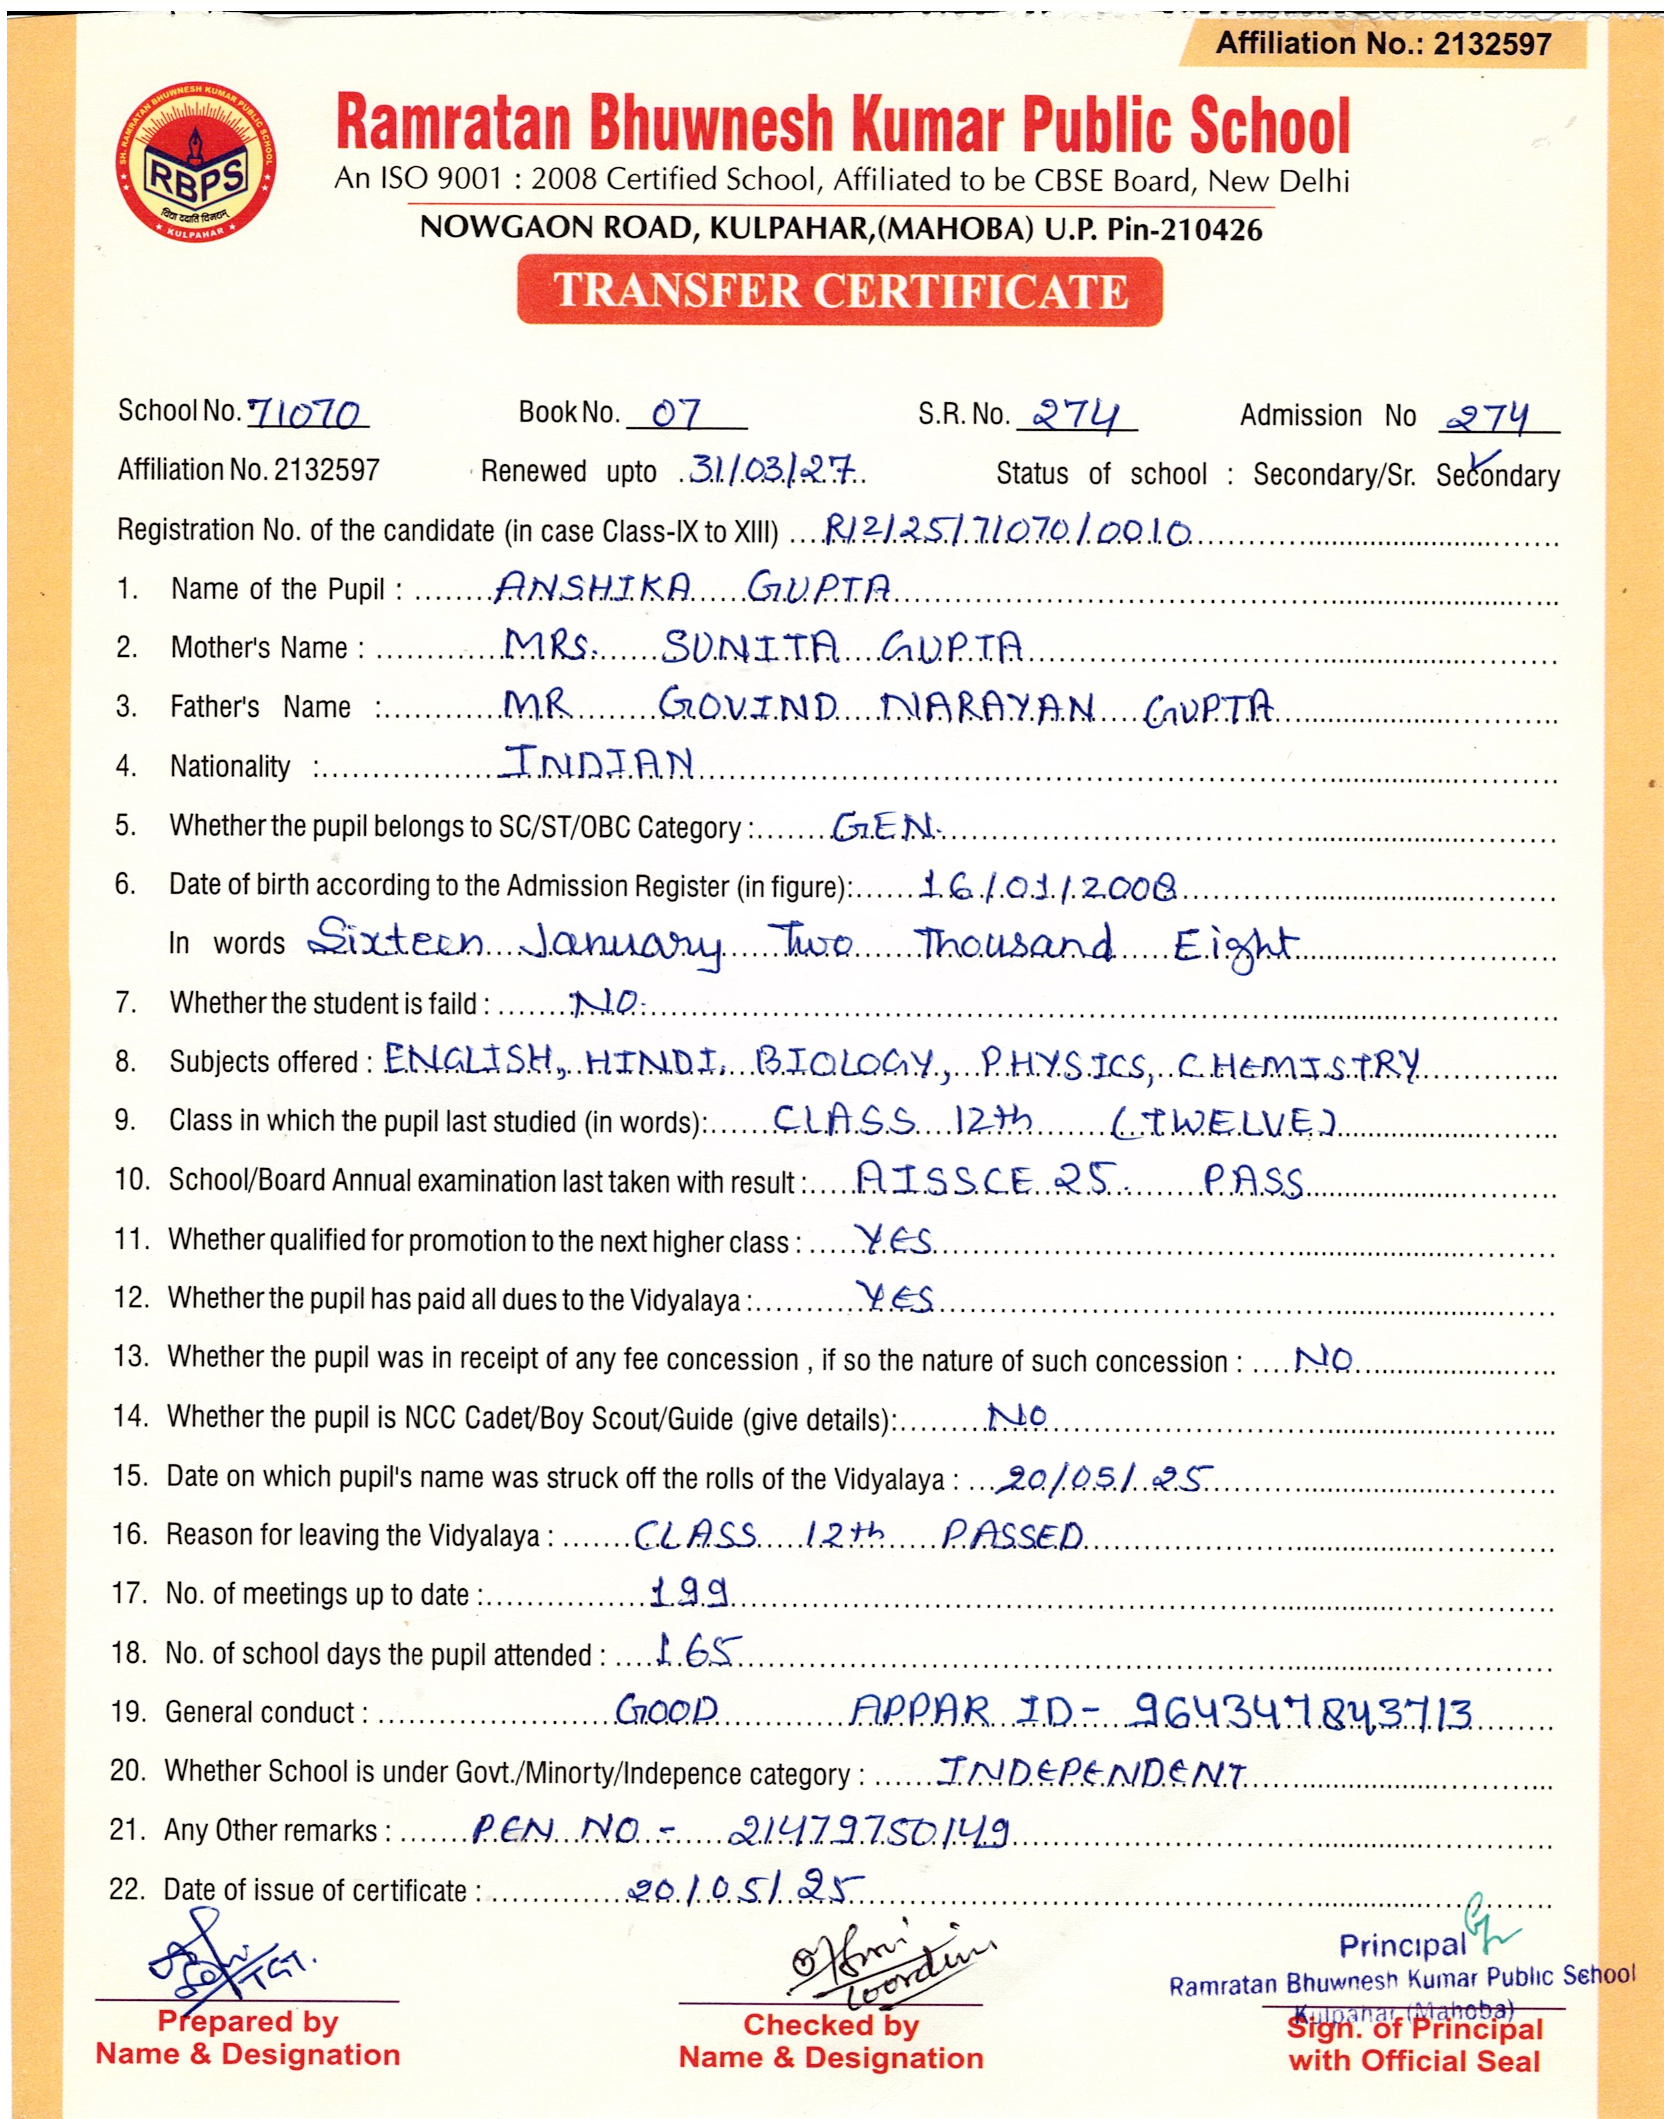 Affiliation No.: 2132597
SH. RAMRATAN BHUWNESH KUMAR PUBLIC SCHOOL
RBPS
विद्या ददाति विनयम्
KULPAHAR
Ramratan Bhuwnesh Kumar Public School
An ISO 9001 : 2008 Certified School, Affiliated to be CBSE Board, New Delhi
NOWGAON ROAD, KULPAHAR,(MAHOBA) U.P. Pin-210426
TRANSFER CERTIFICATE
School No. 71070 Book No. 07 S.R. No. 274 Admission No 274
Affiliation No. 2132597 Renewed upto 31/03/27 Status of school : Secondary/Sr. Secondary
Registration No. of the candidate (in case Class-IX to XIII) R/2/25/71070/0010
1. Name of the Pupil : ANSHIKA GUPTA
2. Mother's Name : MRS. SUNITA GUPTA
3. Father's Name : MR GOVIND NARAYAN GUPTA
4. Nationality : INDIAN
5. Whether the pupil belongs to SC/ST/OBC Category : GEN.
6. Date of birth according to the Admission Register (in figure): 16/01/2008
In words Sixteen January Two Thousand Eight
7. Whether the student is faild : NO.
8. Subjects offered : ENGLISH, HINDI, BIOLOGY, PHYSICS, CHEMISTRY
9. Class in which the pupil last studied (in words): CLASS 12th (TWELVE)
10. School/Board Annual examination last taken with result : AISSCE 25. PASS
11. Whether qualified for promotion to the next higher class : YES
12. Whether the pupil has paid all dues to the Vidyalaya : YES
13. Whether the pupil was in receipt of any fee concession , if so the nature of such concession : NO
14. Whether the pupil is NCC Cadet/Boy Scout/Guide (give details): NO
15. Date on which pupil's name was struck off the rolls of the Vidyalaya : 20/05/25
16. Reason for leaving the Vidyalaya : CLASS 12th PASSED
17. No. of meetings up to date : 199
18. No. of school days the pupil attended : 165
19. General conduct : GOOD APPAR ID - 964347843713
20. Whether School is under Govt./Minorty/Indepence category : INDEPENDENT
21. Any Other remarks : PEN NO - 21479750149
22. Date of issue of certificate : 20/05/25
TGT.
Principal
Ramratan Bhuwnesh Kumar Public School
Kulpahar (Mahoba)
Prepared by
Name & Designation
Checked by
Name & Designation
Sign. of Principal
with Official Seal